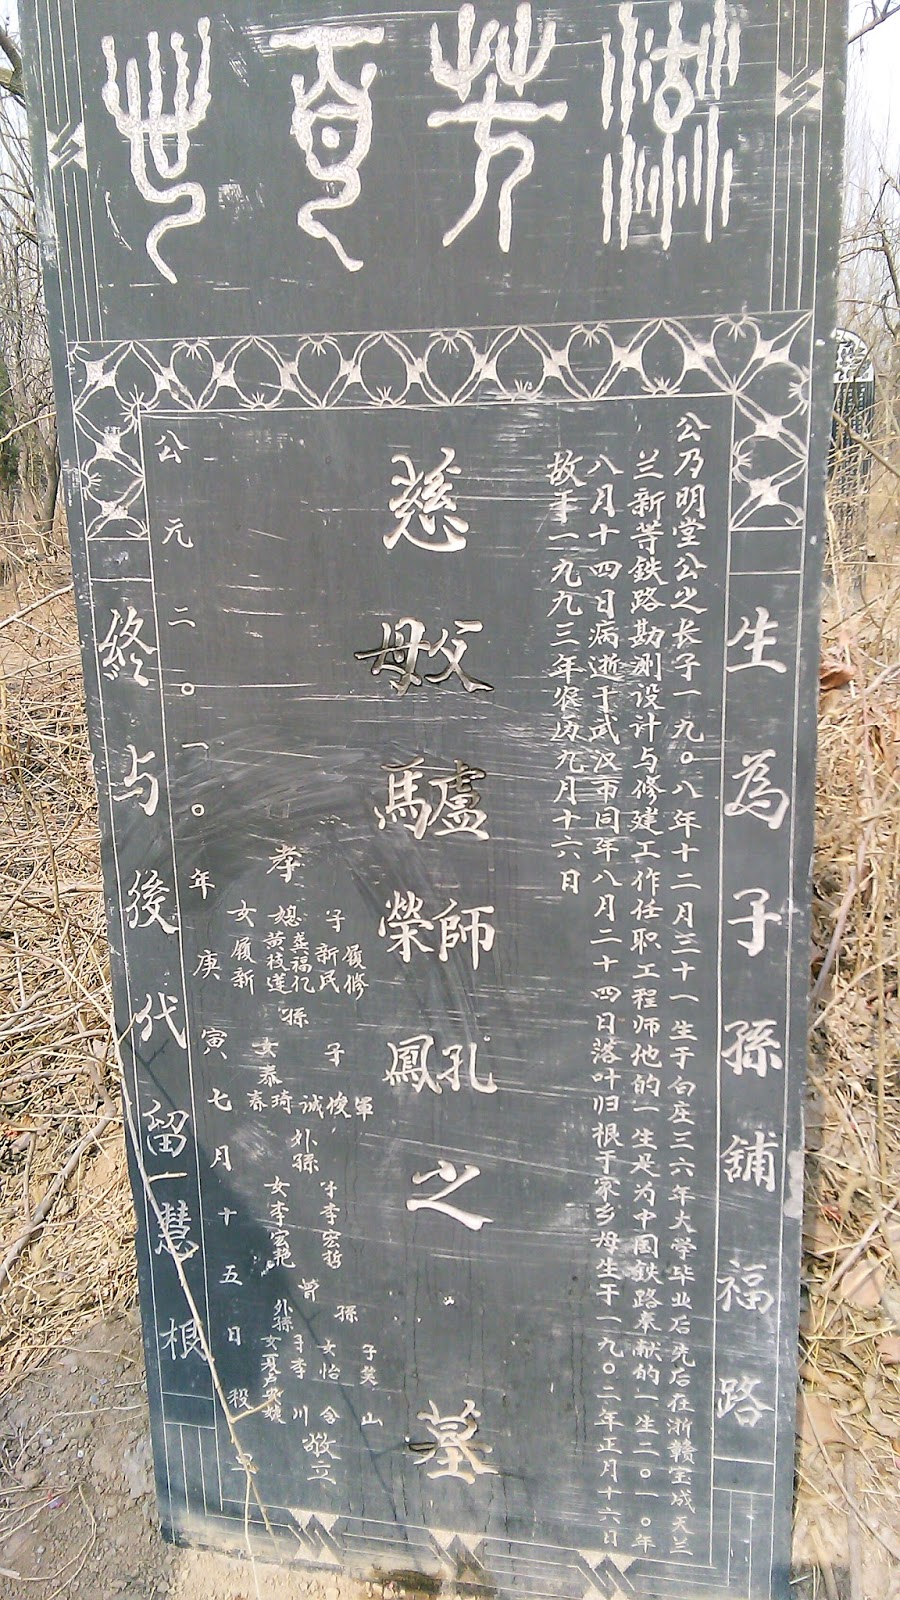 流芳百世
生為子孫舖福路
公乃明堂公之长子一九〇八年十二月三十一生于白庄三六年大学毕业后先后在浙赣宝成天兰
兰新等铁路勘测设计与修建工作任职工程师他的一生是为中国铁路奉献的一生二〇一〇年
八月十四日病逝于武汉市同年八月二十四日落叶归根于家乡母生于一九〇二年正月十六日
故于一九九三年农历九月十六日
慈
父盧師孔
母馬榮鳳
之墓
孝
子履修
新民
媳龚福亿
黄枝莲
女履新
孫
子俊軍
誠
女泰琦
春
外孫
子李宏哲
女李宏艳
曾
孫
子奕山
女怡含
外孫
子李川
女夏卢
敬立
公元二〇一〇年庚寅七月十五日 殺旦
終与後代留慧根